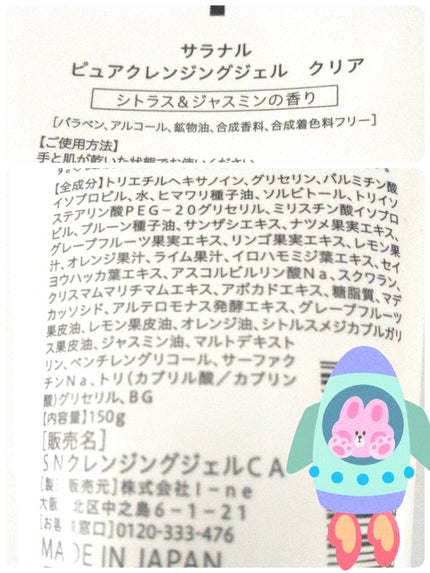 サラナル
ピュアクレンジングジェル　クリア
シトラス&ジャスミンの香り
[パラベン、アルコール、鉱物油、合成香料、合成着色料フリー]
【ご使用方法】
手と肌が乾いた状態でお使いください
【全成分】トリエチルヘキサノイン、グリセリン、パルミチン酸
イソプロピル、水、ヒマワリ種子油、ソルビトール、トリイソ
ステアリン酸PEG-20グリセリル、ミリスチン酸イソプロ
ピル、プルーン種子油、サンザシエキス、ナツメ果実エキス、
グレープフルーツ果実エキス、リンゴ果実エキス、レモン果
汁、オレンジ果汁、ライム果汁、イロハモミジ葉エキス、セイ
ヨウハッカ葉エキス、アスコルビルリン酸Na、スクワラン、
クリスマムマリチマムエキス、アボカドエキス、糖脂質、マデ
カッソシド、アルテロモナス発酵エキス、グレープフルーツ
果皮油、レモン果皮油、オレンジ油、シトルスメジカブルガリ
ス果皮油、ジャスミン油、マルトデキスト
リン、ペンチレングリコール、サーファク
チンNa、トリ(カプリル酸/カプリン
酸)グリセリル、BG
【内容量】150g
[販売名]
SNクレンジングジェルCA
[製 販売元]株式会社I-ne
大阪 北区中之島6-1-21
[お客 窓口]0120-333-476
MADE IN JAPAN